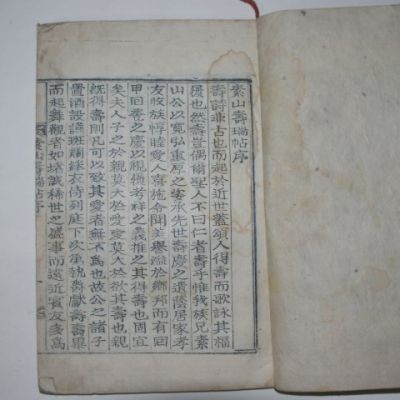 素山壽瑞帖序
壽詩非古也而起於近世蓋頌人得壽而歌詠其福
履也然壽豈偶爾聖人不曰仁者壽乎惟我族兄素
山公以寬弘重厚之姿承先世壽慶之遺蔭居家孝
友牧族惇睦愛人喜施令聞美譽溢於鄉邦而有回
甲回巹之慶以視履考祥之義推之其得壽也固宜
矣夫人子之於親莫大於愛愛莫大於欲其壽也親
旣得壽則凡可以致其愛者無不爲也故公之諸子
置酒設讌斑斕綵衣侍列庭下次第執觴獻壽壽畢
而起舞觀者如堵誠稀世之盛事而遠近賓友多爲
素山壽瑞帖序